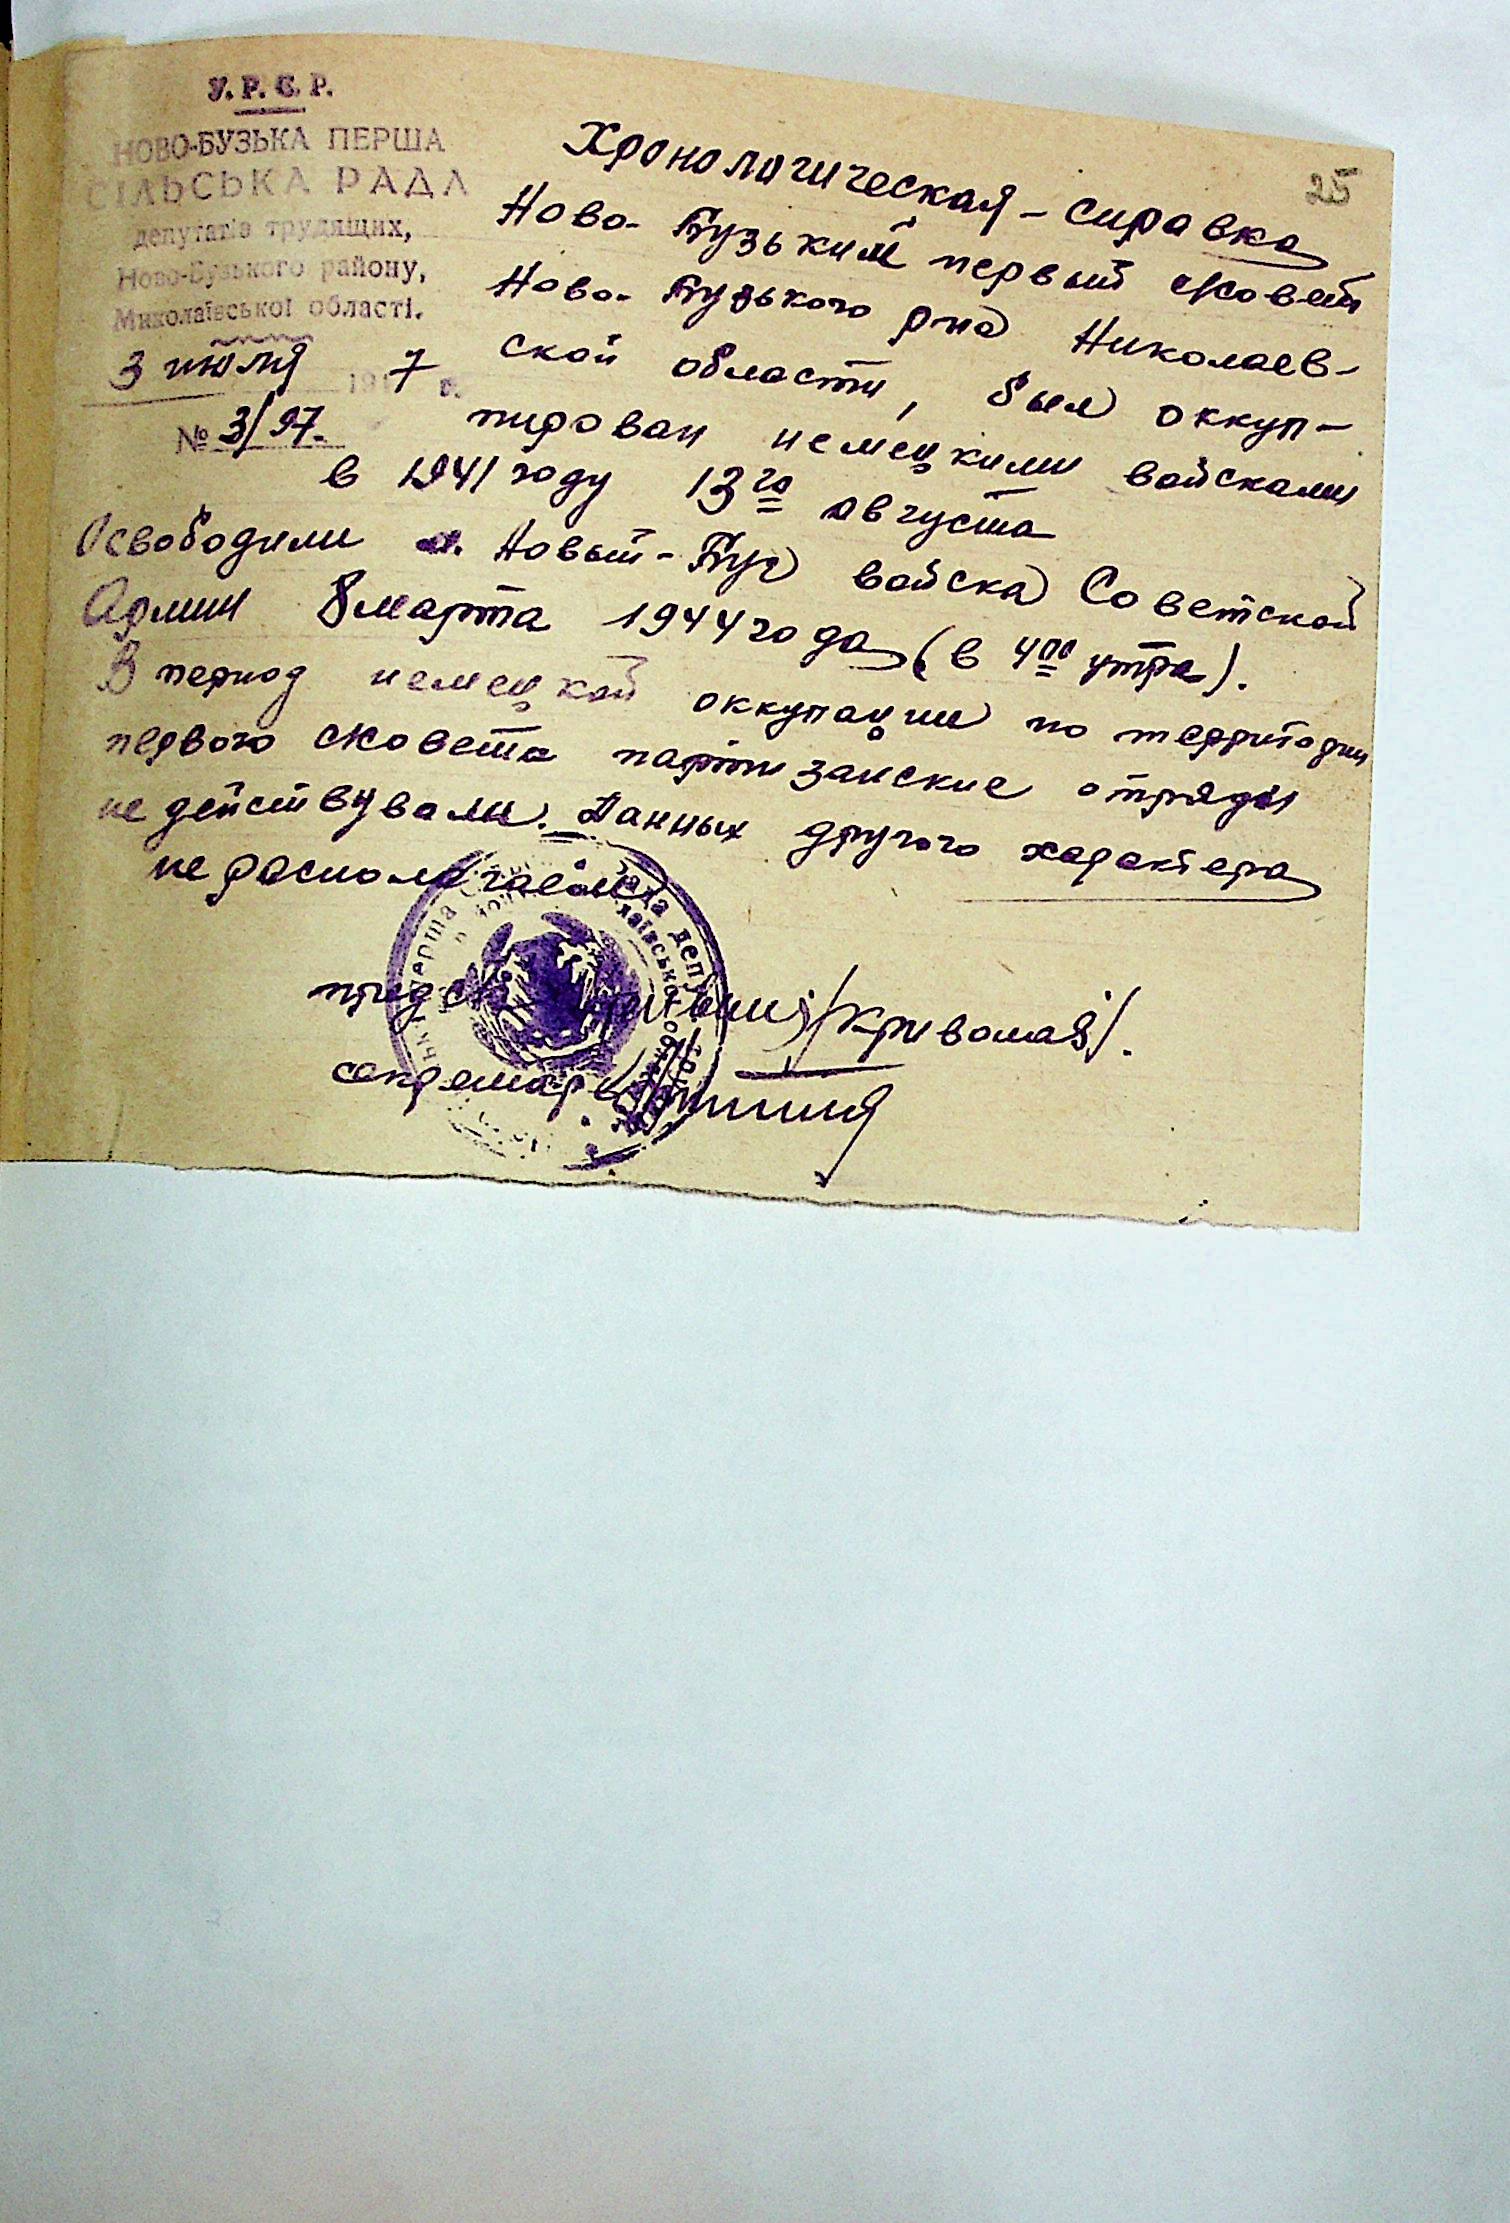 У.Р.С.Р.
НОВО-БУЗЬКА ПЕРША
СІЛЬСЬКА РАДА
депутатів трудящих,
Ново-Бузького району,
Миколаївської області.
3 июля 7 г.
№ 3/97.
25
Хронологическая - справка
Ново-Бузький первый с/совет
Ново-Бузького р-на Николаев-
ской области, был оккуп-
пирован немецкими войсками
в 1941 году 13го августа
Освободили Новый-Буг войска Советской
Армии 8 марта 1944 года (в 4 00 утра).
В период немецкой оккупации по территории
первого с/совета партизанские отряды
не действували. Данных другого характера
не располагаем
/Кривомаз/.
секретарь